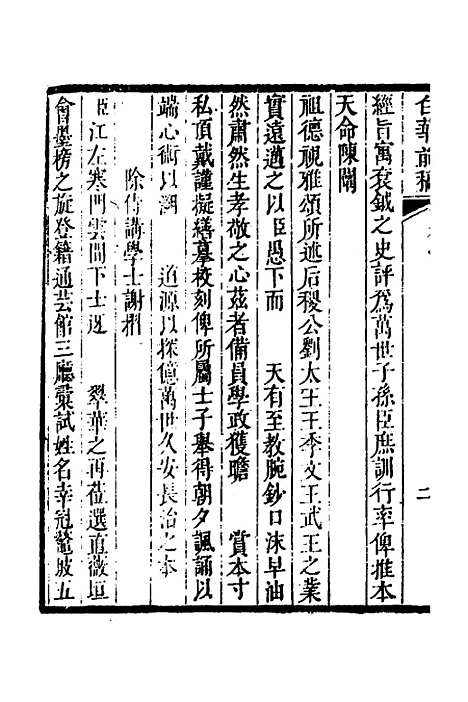 白華前稿
二
經旨寓衮鉞之史評爲萬世子孫臣庶訓行率俾推本
天命陳闡
祖德視雅頌所述后稷公劉太王王季文王武王之業
實遠邁之以臣愚下而 天有至教腕鈔口沫早油
然肅然生孝敬之心茲者備員學政獲瞻 賞本寸
私頂戴謹擬繕摹校刻俾所屬士子舉得朝夕諷誦以
端心術以溯 道源以探億萬世久安長治之本
除侍講學士謝摺
臣江左寒門雲間下士迓 翠華之再莅選直薇垣
會墨榜之旋登籍通芸館三廳彚試姓名幸冠鼇坡五